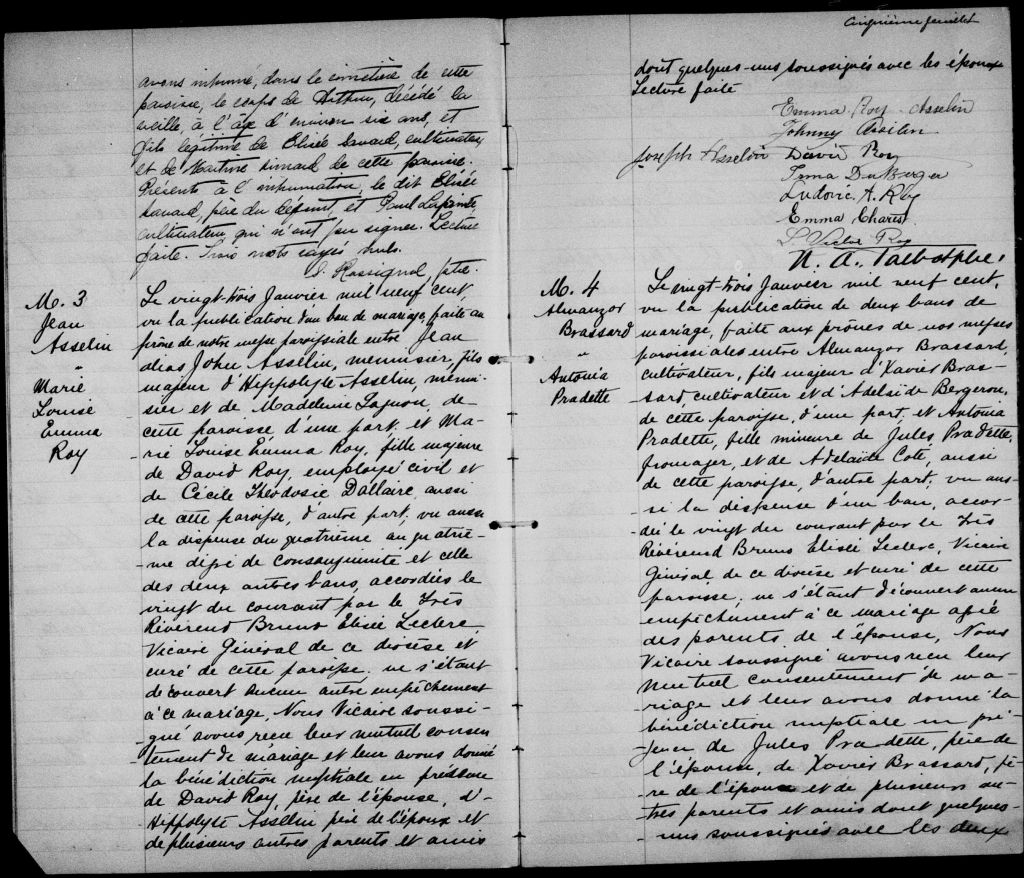 avons inhumé, dans le cimetière de cette
paroisse, le corps de Arthur, décédé la
veille, à l'âge d'environ six ans, et
fils légitime de Elisée Savard, cultivateur
et de Martine Simard de cette paroisse.
Présents à l'inhumation, le dit Elisée
Savard, père du défunt, et Paul Lapointe
cultivateur qui n'ont pu signer. Lecture
faite. Trois mots rayés nuls.
J. Rossignol, ptre.
M. 3
Jean
Asselin
"
Marie
Louise
Emma
Roy
Le vingt-trois Janvier mil neuf cent,
vu la publication d'un ban de mariage, faite au
prône de notre messe paroissiale entre Jean
dias John Asselin, menuisier, fils
majeur d'Hippolyte Asselin, menui-
sier et de Madeleine Gagnon, de
cette paroisse d'une part; et Ma-
rie Louise Emma Roy, fille majeure
de David Roy, employé civil et
de Cécile Théodosie Dallaire, aussi
de cette paroisse, d'autre part; vu aussi
la dispense du quatrième au quatriè-
-me degré de consanguinité et celle
des deux autres bans, accordées le
vingt du courant par le Très
Révérend Bruno Elisée Leclerc,
Vicaire Général de ce diocèse et
curé de cette paroisse; ne s'étant
découvert aucun autre empêchement
à ce mariage, Nous Vicaire soussi-
gné avons reçu leur mutuel consen
tement de mariage et leur avons donné
la bénédiction nuptiale en présence
de David Roy, père de l'épouse, d'
Hippolyte Asselin père de l'époux et
de plusieurs autres parents et amis
Cinquième feuillet
dont quelques-uns soussignés avec les époux
Lecture faite
Emma Roy-Asselin
Johnny Asselin
Joseph Asselin David Roy
Irma DuBerger
Ludovic A. Roy
Emma Charest
L. Victor Roy
N. A. Talbot ptre.
M. 4
Almanzor
Brassard
"
Antonia
Pradette
Le vingt-trois Janvier mil neuf cent,
vu la publication de deux bans de
mariage, faite aux prônes de nos messes
paroissiales entre Almanzor Brassard,
cultivateur, fils majeur d'Xavier Bras-
-sard, cultivateur et d'Adelaïde Bergeron,
de cette paroisse, d'une part; et Antonia
Pradette, fille mineure de Jules Pradette,
fromager, et de Adelaïde Coté, aussi
de cette paroisse, d'autre part; vu aus-
-si la dispense d'un ban, accor-
dée le vingt du courant par le Très
Révérend Bruno Elisée Leclerc, Vicaire
Général de ce diocèse et curé de cette
paroisse; ne s'étant découvert aucun
empêchement à ce mariage agréé
des parents de l'épouse, Nous
Vicaire soussigné avons reçu leur
mutuel consentement de ma-
-riage et leur avons donné la
bénédiction nuptiale en pré-
-sence de Jules Pradette, père de
l'épouse, de Xavier Brassard, pè-
re de l'époux et de plusieurs au-
-tres parents et amis dont quelques-
-uns soussignés avec les deux